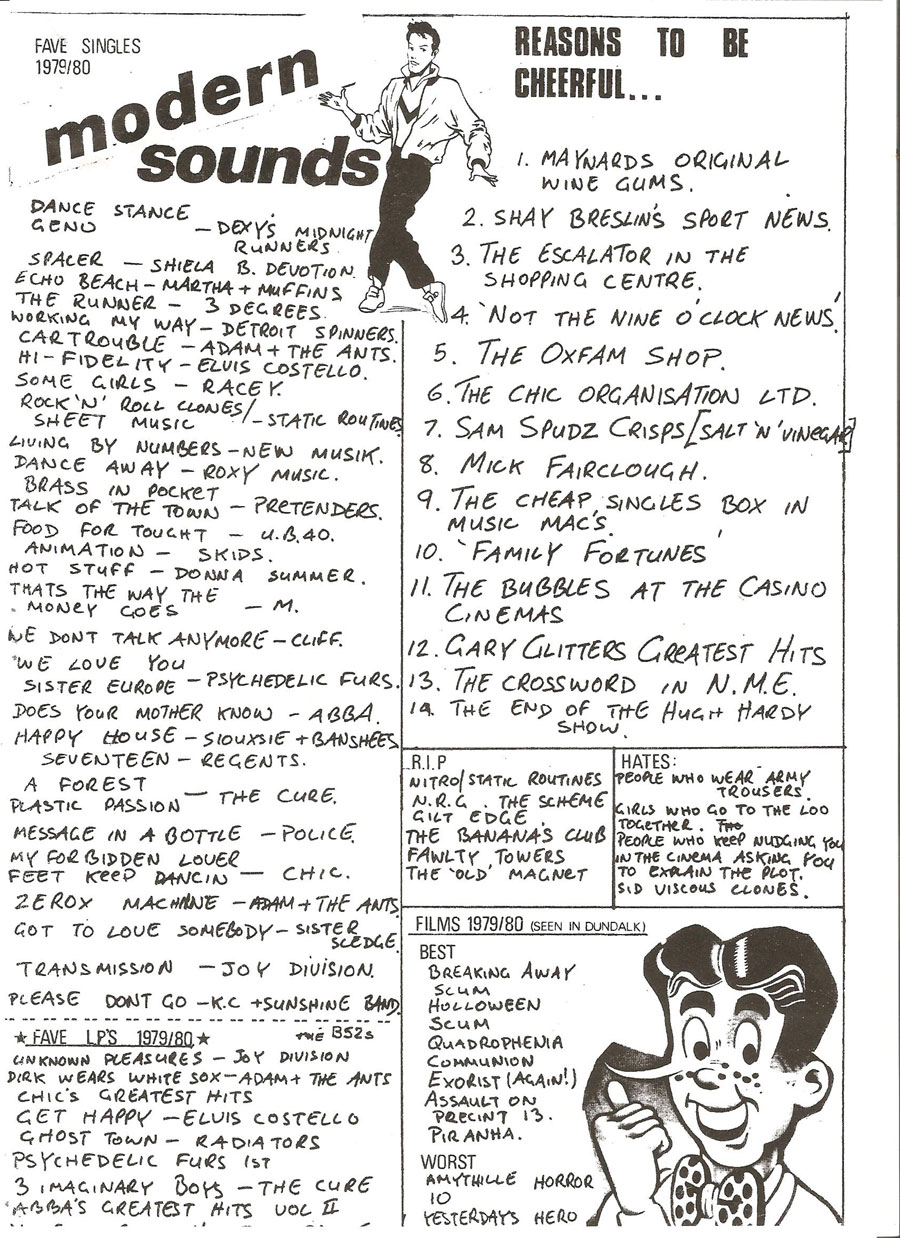 FAVE SINGLES
1979/80
modern
sounds
DANCE STANCE
GENO
— DEXY'S MIDNIGHT
RUNNERS
SPACER — SHIELA B. DEVOTION
ECHO BEACH — MARTHA + MUFFINS
THE RUNNER — 3 DEGREES
WORKING MY WAY — DETROIT SPINNERS.
CAR TROUBLE — ADAM + THE ANTS.
HI-FIDELITY — ELVIS COSTELLO.
SOME GIRLS — RACEY.
ROCK 'N' ROLL CLONES/
SHEET MUSIC — STATIC ROUTINES
LIVING BY NUMBERS — NEW MUSIK.
DANCE AWAY — ROXY MUSIC.
BRASS IN POCKET
TALK OF THE TOWN — PRETENDERS.
FOOD FOR TOUGHT — U.B.40.
ANIMATION — SKIDS.
HOT STUFF — DONNA SUMMER.
THATS THE WAY THE
MONEY GOES — M.
WE DONT TALK ANYMORE — CLIFF.
WE LOVE YOU
SISTER EUROPE — PSYCHEDELIC FURS.
DOES YOUR MOTHER KNOW — ABBA.
HAPPY HOUSE — SIOUXSIE + BANSHEES
SEVENTEEN — REGENTS.
A FOREST
PLASTIC PASSION — THE CURE.
MESSAGE IN A BOTTLE — POLICE.
MY FORBIDDEN LOVER
FEET KEEP DANCIN — CHIC.
ZEROX MACHINE — ADAM + THE ANTS
GOT TO LOVE SOMEBODY — SISTER
SLEDGE.
TRANSMISSION — JOY DIVISION.
PLEASE DONT GO — K.C + SUNSHINE BAND
★ FAVE LP'S 1979/80 ★ THE B52s
UNKNOWN PLEASURES — JOY DIVISION
DIRK WEARS WHITE SOX — ADAM + THE ANTS
CHIC'S GREATEST HITS
GET HAPPY — ELVIS COSTELLO
GHOST TOWN — RADIATORS
PSYCHEDELIC FURS 1ST
3 IMAGINARY BOYS — THE CURE
ABBA'S GREATEST HITS VOL II
REASONS TO BE
CHEERFUL...
1. MAYNARDS ORIGINAL
WINE GUMS.
2. SHAY BRESLIN'S SPORT NEWS.
3. THE ESCALATOR IN THE
SHOPPING CENTRE.
4. 'NOT THE NINE O'CLOCK NEWS'.
5. THE OXFAM SHOP.
6. THE CHIC ORGANISATION LTD.
7. SAM SPUDZ CRISPS [SALT 'N' VINEGAR]
8. MICK FAIRCLOUGH.
9. THE CHEAP SINGLES BOX IN
MUSIC MAC'S
10. 'FAMILY FORTUNES'
11. THE BUBBLES AT THE CASINO
CINEMAS
12. GARY GLITTERS GREATEST HITS
13. THE CROSSWORD IN N.M.E.
14. THE END OF THE HUGH HARDY
SHOW.
R.I.P
NITRO/STATIC ROUTINES
N.R.G. THE SCHEME
GILT EDGE.
THE BANANA'S CLUB
FAWLTY TOWERS
THE 'OLD' MAGNET
HATES:
PEOPLE WHO WEAR ARMY
TROUSERS.
GIRLS WHO GO TO THE LOO
TOGETHER.
PEOPLE WHO KEEP NUDGING YOU
IN THE CINEMA ASKING YOU
TO EXPLAIN THE PLOT.
SID VISCOUS CLONES.
FILMS 1979/80 (SEEN IN DUNDALK)
BEST
BREAKING AWAY
SCUM
HOLLOWEEN
SCUM
QUADROPHENIA
COMMUNION
EXORIST (AGAIN!)
ASSAULT ON
PRECINT 13.
PIRANHA.
WORST
AMYTHILLE HORROR
10
YESTERDAYS HERO